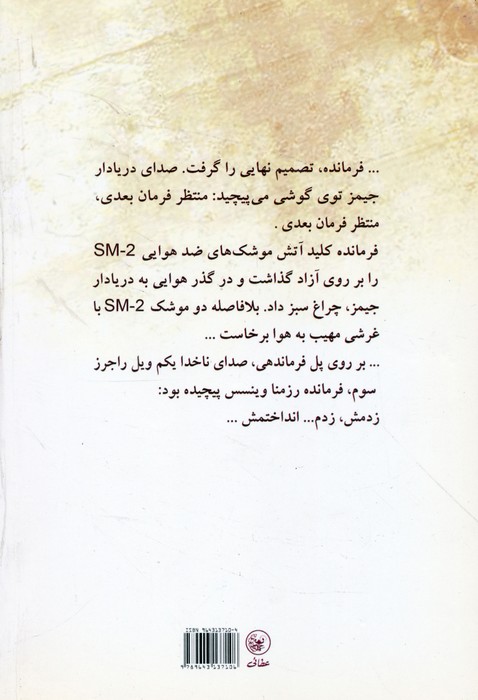 ... فرمانده، تصمیم نهایی را گرفت. صدای دریادار
جیمز توی گوشی می‌پیچید: منتظر فرمان بعدی،
منتظر فرمان بعدی .
فرمانده کلید آتش موشک‌های ضد هوایی SM-2
را بر روی آزاد گذاشت و در گذر هوایی به دریادار
جیمز، چراغ سبز داد. بلافاصله دو موشک SM-2 با
غرشی مهیب به هوا برخاست ...
... بر روی پل فرماندهی، صدای ناخدا یکم ویل راجرز
سوم، فرمانده رزمنا وینسس پیچیده بود:
زدمش، زدم... انداختمش ...
ISBN 964313710-9
9789643137106
عطائی